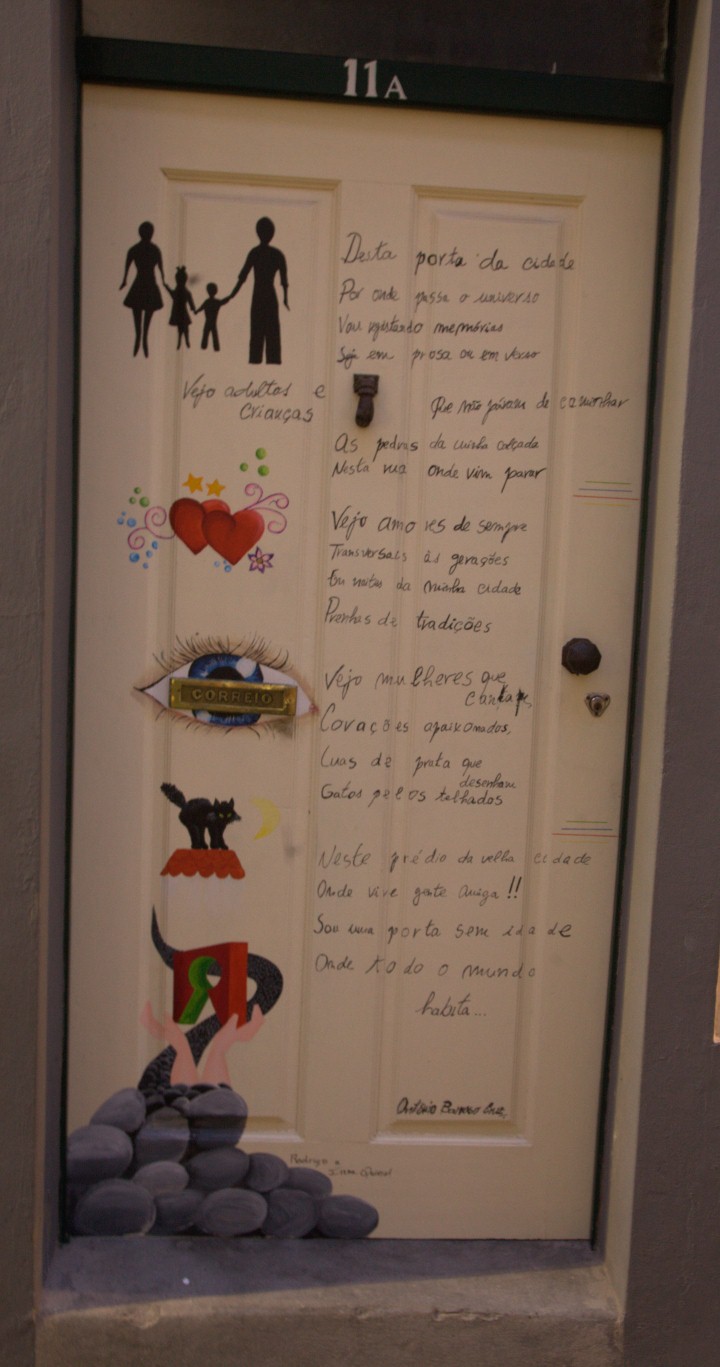 11A
Desta porta da cidade
Por onde passa o universo
Vou registando memórias
Seja em prosa ou em verso
Vejo adultos e
crianças
Que não páram de caminhar
As pedras da minha calçada
Nesta rua onde vim parar
Vejo amores de sempre
Transversais às gerações
Em noites da minha cidade
Prenhas de tradições
Vejo mulheres que
cantam,
Corações apaixonados,
CORREIO
Luas de prata que
desenham
Gatos pelos telhados
Neste prédio da velha cidade
Onde vive gente amiga!!
Sou uma porta sem idade
Onde todo o mundo
habita...
António Barroso Cruz,
Rodrigo e